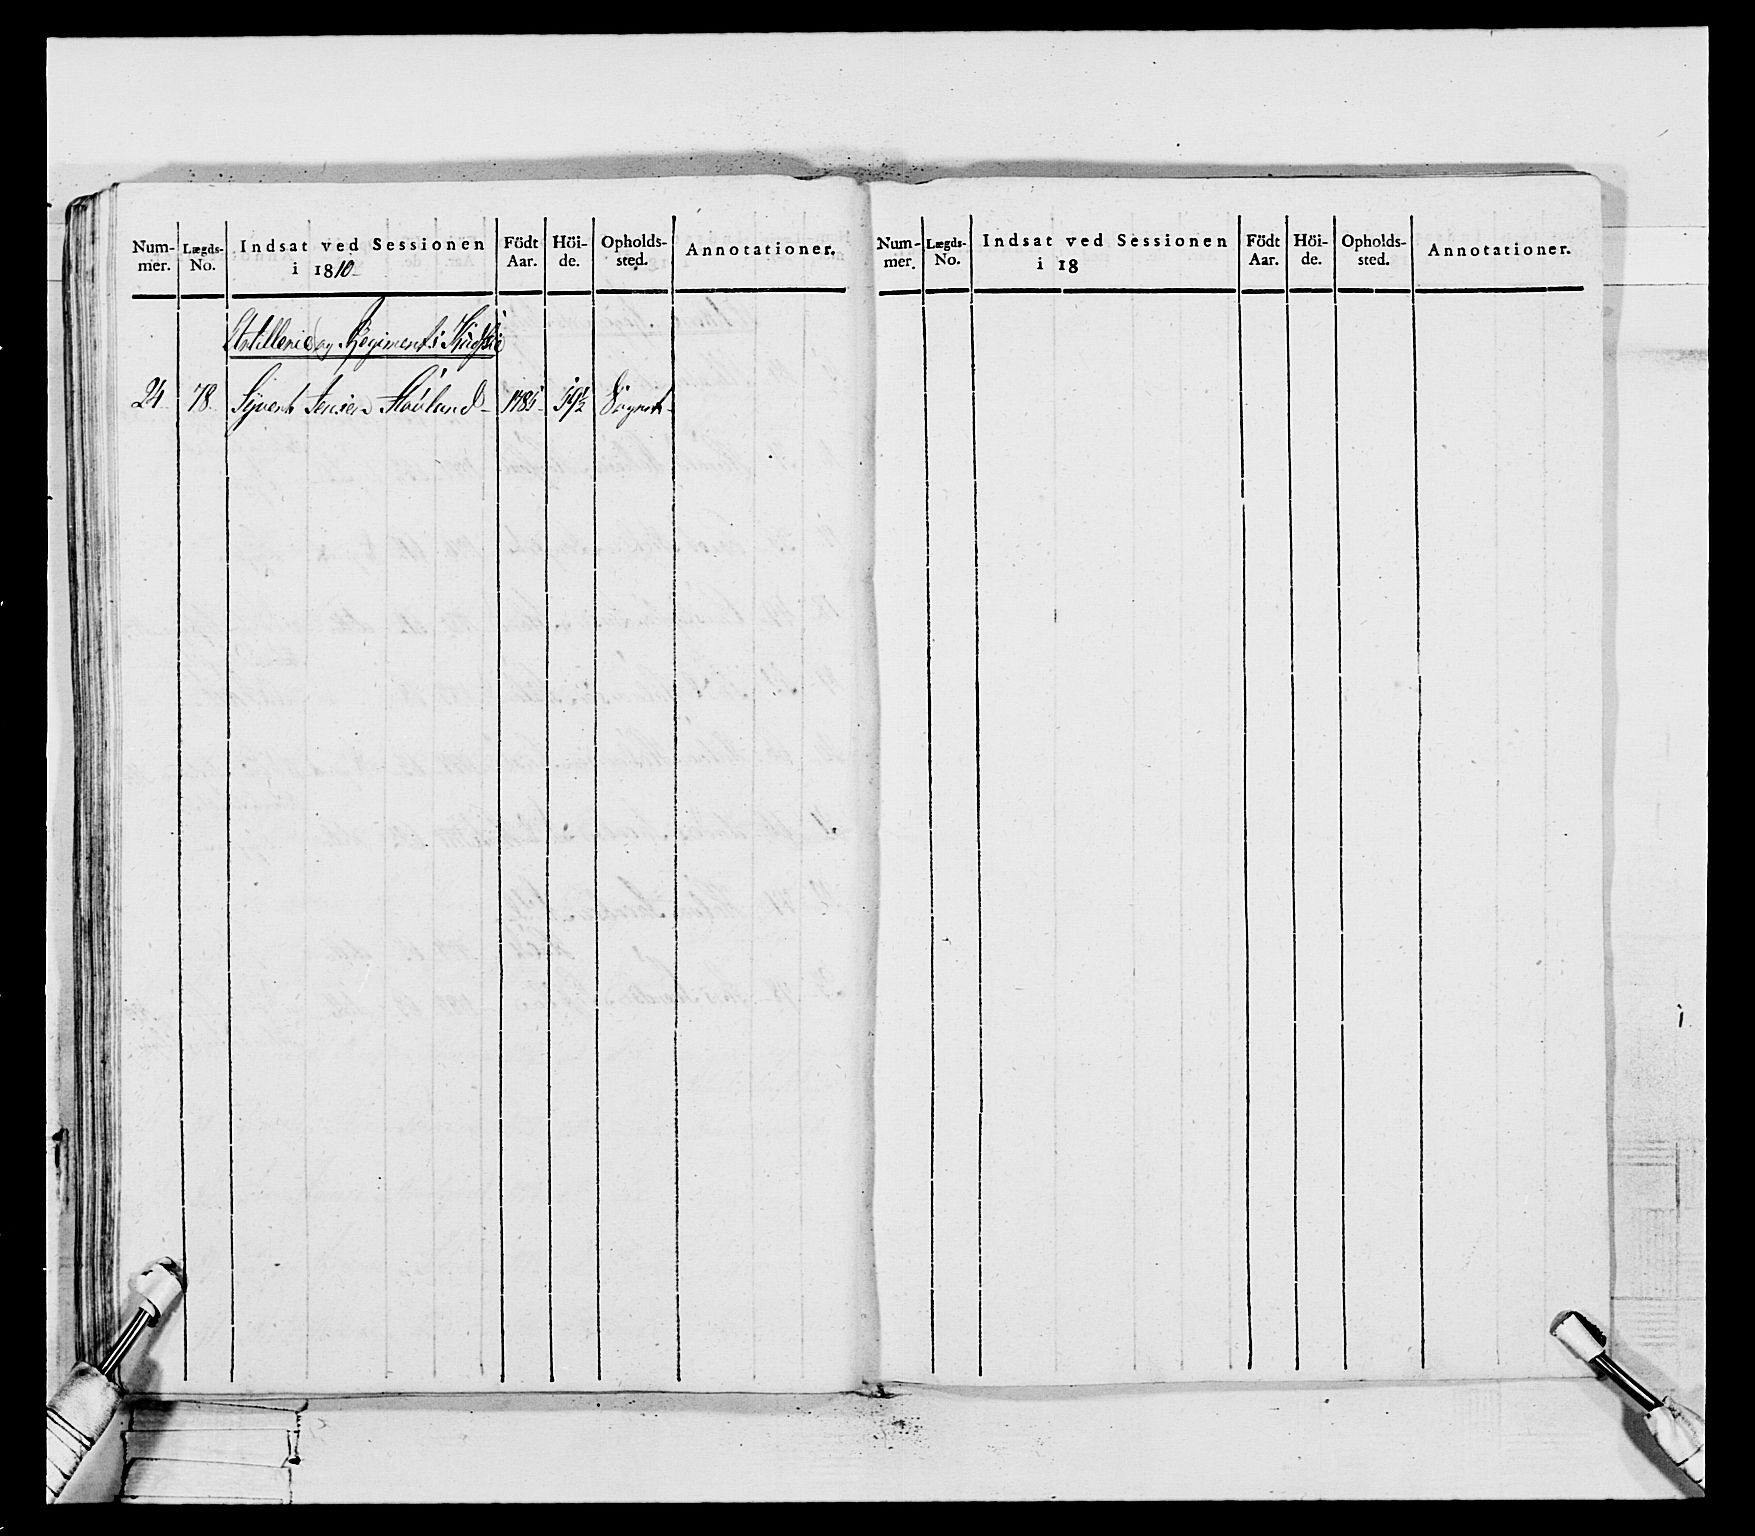 Num-mer. Lægds-No. Indsat ved Sessionen i 1810 Födt Aar. Höi-de. Opholds-sted. Annotationer.
Artillerie og Regiments
24 78 Sivert Jensen 1785 59½ Sognet
Num-mer. Lægds-No. Indsat ved Sessionen i 18 Födt Aar. Höi-de. Opholds-sted. Annotationer.